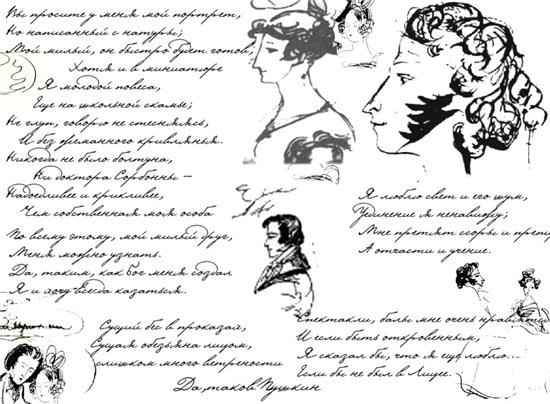 Вы просите у меня мой портрет,
Но написанный с натуры;
Мой милый, он быстро будет готов,
Хотя и в миниатюре
Я молодой повеса,
Еще на школьной скамье;
Не глуп, говорю не стесняясь,
И без жеманного кривлянья.
Никогда не было болтуна,
Ни доктора Сорбонны –
Надоедливее и крикливее,
Чем собственная моя особа
По всему этому, мой милый друг,
Меня можно узнать.
Да, таким, как бог меня создал
Я и хочу всегда казаться.
Я люблю свет и его шум,
Уединение я ненавижу;
Мне претят ссоры и препи
А отчасти и учение.
Спектакли, балы мне очень нравятся
И если быть откровенным,
Я сказал бы, что я еще люблю...
Если бы не был в Лицее.
Сущий бес в проказах,
Сущая обезьяна лицом,
слишком много ветрености
Да, таков Пушкин